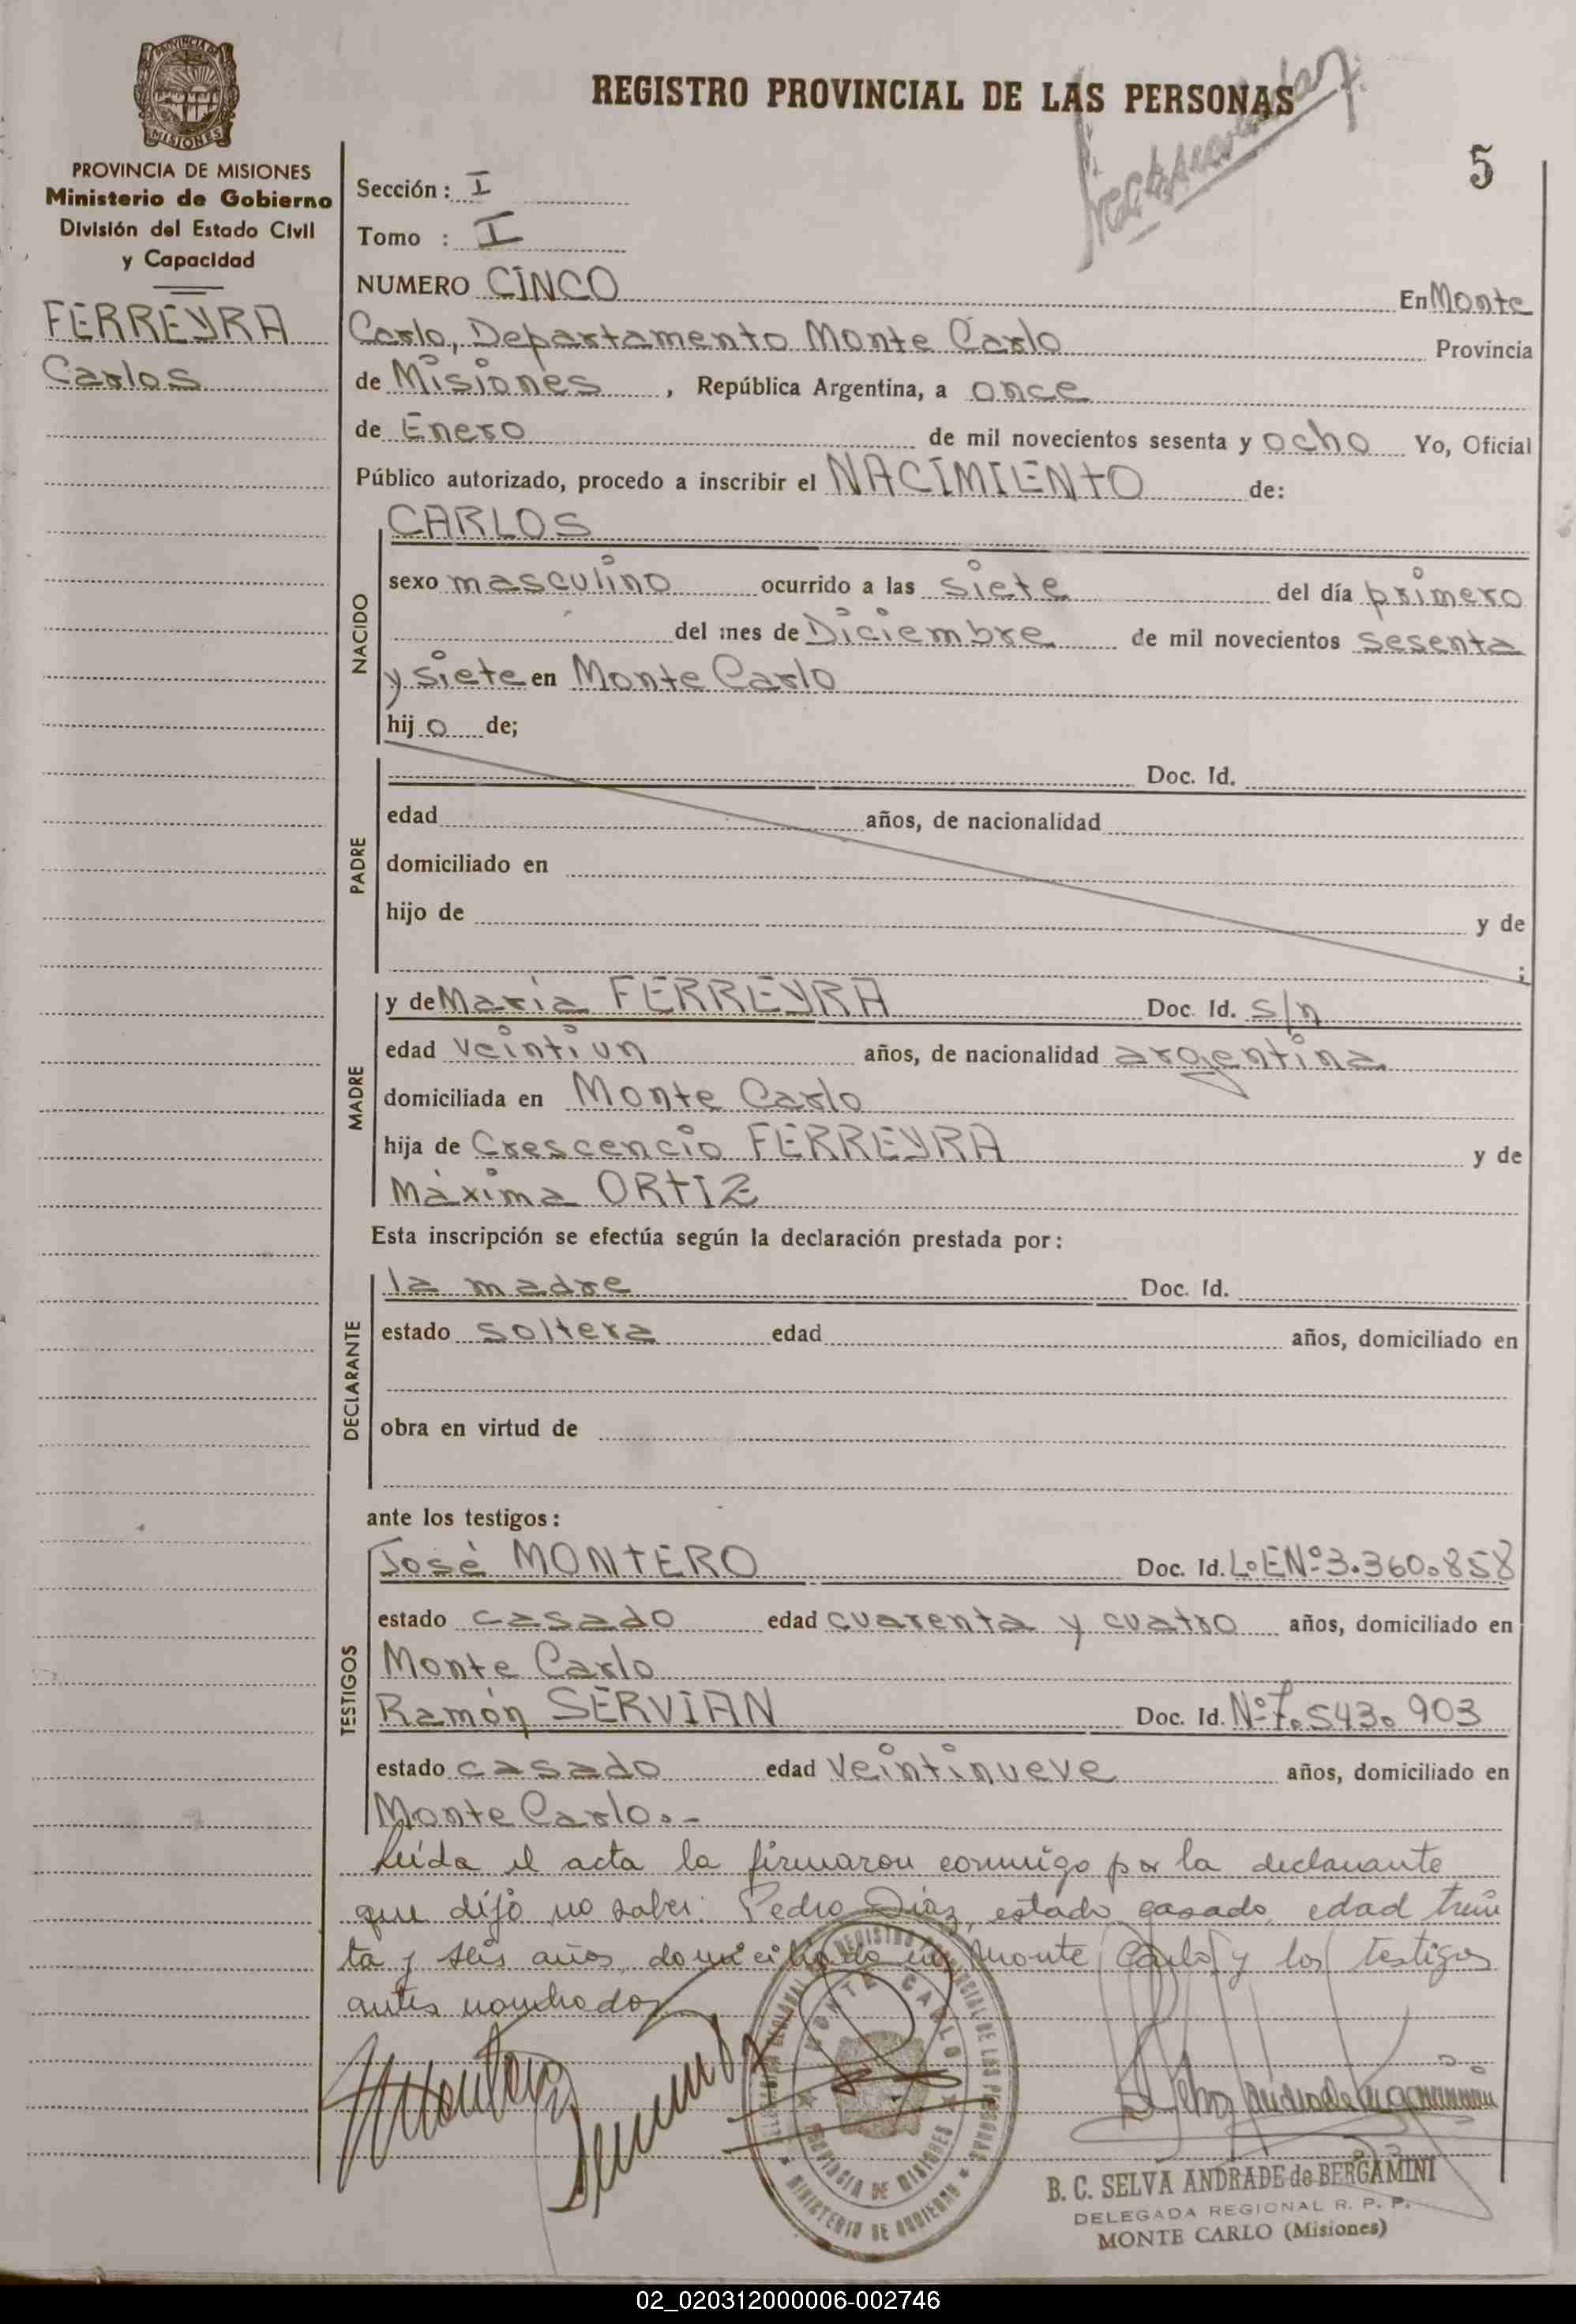 REGISTRO PROVINCIAL DE LAS PERSONAS
5
PROVINCIA DE MISIONES
MISIONES
PROVINCIA DE MISIONES
Ministerio de Gobierno
División del Estado Civil
y Capacidad
FERREYRA
Carlos
Sección: I
Tomo : I
NUMERO CINCO En Monte
Carlo, Departamento Monte Carlo Provincia
de Misiones, República Argentina, a once
de Enero de mil novecientos sesenta y ocho Yo, Oficial
Público autorizado, procedo a inscribir el NACIMIENTO de:
NACIDO
CARLOS
sexo masculino ocurrido a las siete del día primero
del mes de Diciembre de mil novecientos sesenta
y siete en Monte Carlo
hijo de;
PADRE
Doc. Id.
edad años, de nacionalidad
domiciliado en
hijo de y de
;
MADRE
y de María FERREYRA Doc. Id. s/n
edad veintiun años, de nacionalidad argentina
domiciliada en Monte Carlo
hija de Crescencio FERREYRA y de
Máxima ORTIZ
Esta inscripción se efectúa según la declaración prestada por:
DECLARANTE
la madre Doc. Id.
estado soltera edad años, domiciliado en
obra en virtud de
ante los testigos:
TESTIGOS
José MONTERO Doc. Id. L.EN° 3.360.858
estado casado edad cuarenta y cuatro años, domiciliado en
Monte Carlo
Ramón SERVIAN Doc. Id. N° 7.543.903
estado casado edad veintinueve años, domiciliado en
Monte Carlo.-
Leída el acta la firmaron conmigo por la declarante
que dijo no saber: Pedro Díaz, estado casado, edad trein
ta y seis años, domiciliado en Monte Carlo y los testigos
antes nombrados
REGISTRO PROVINCIAL DE LAS PERSONAS
MONTE CARLO
PROVINCIA DE MISIONES
MINISTERIO DE GOBIERNO
B. C. SELVA ANDRADE de BERGAMINI
DELEGADA REGIONAL R. P. P.
MONTE CARLO (Misiones)
02_020312000006-002746